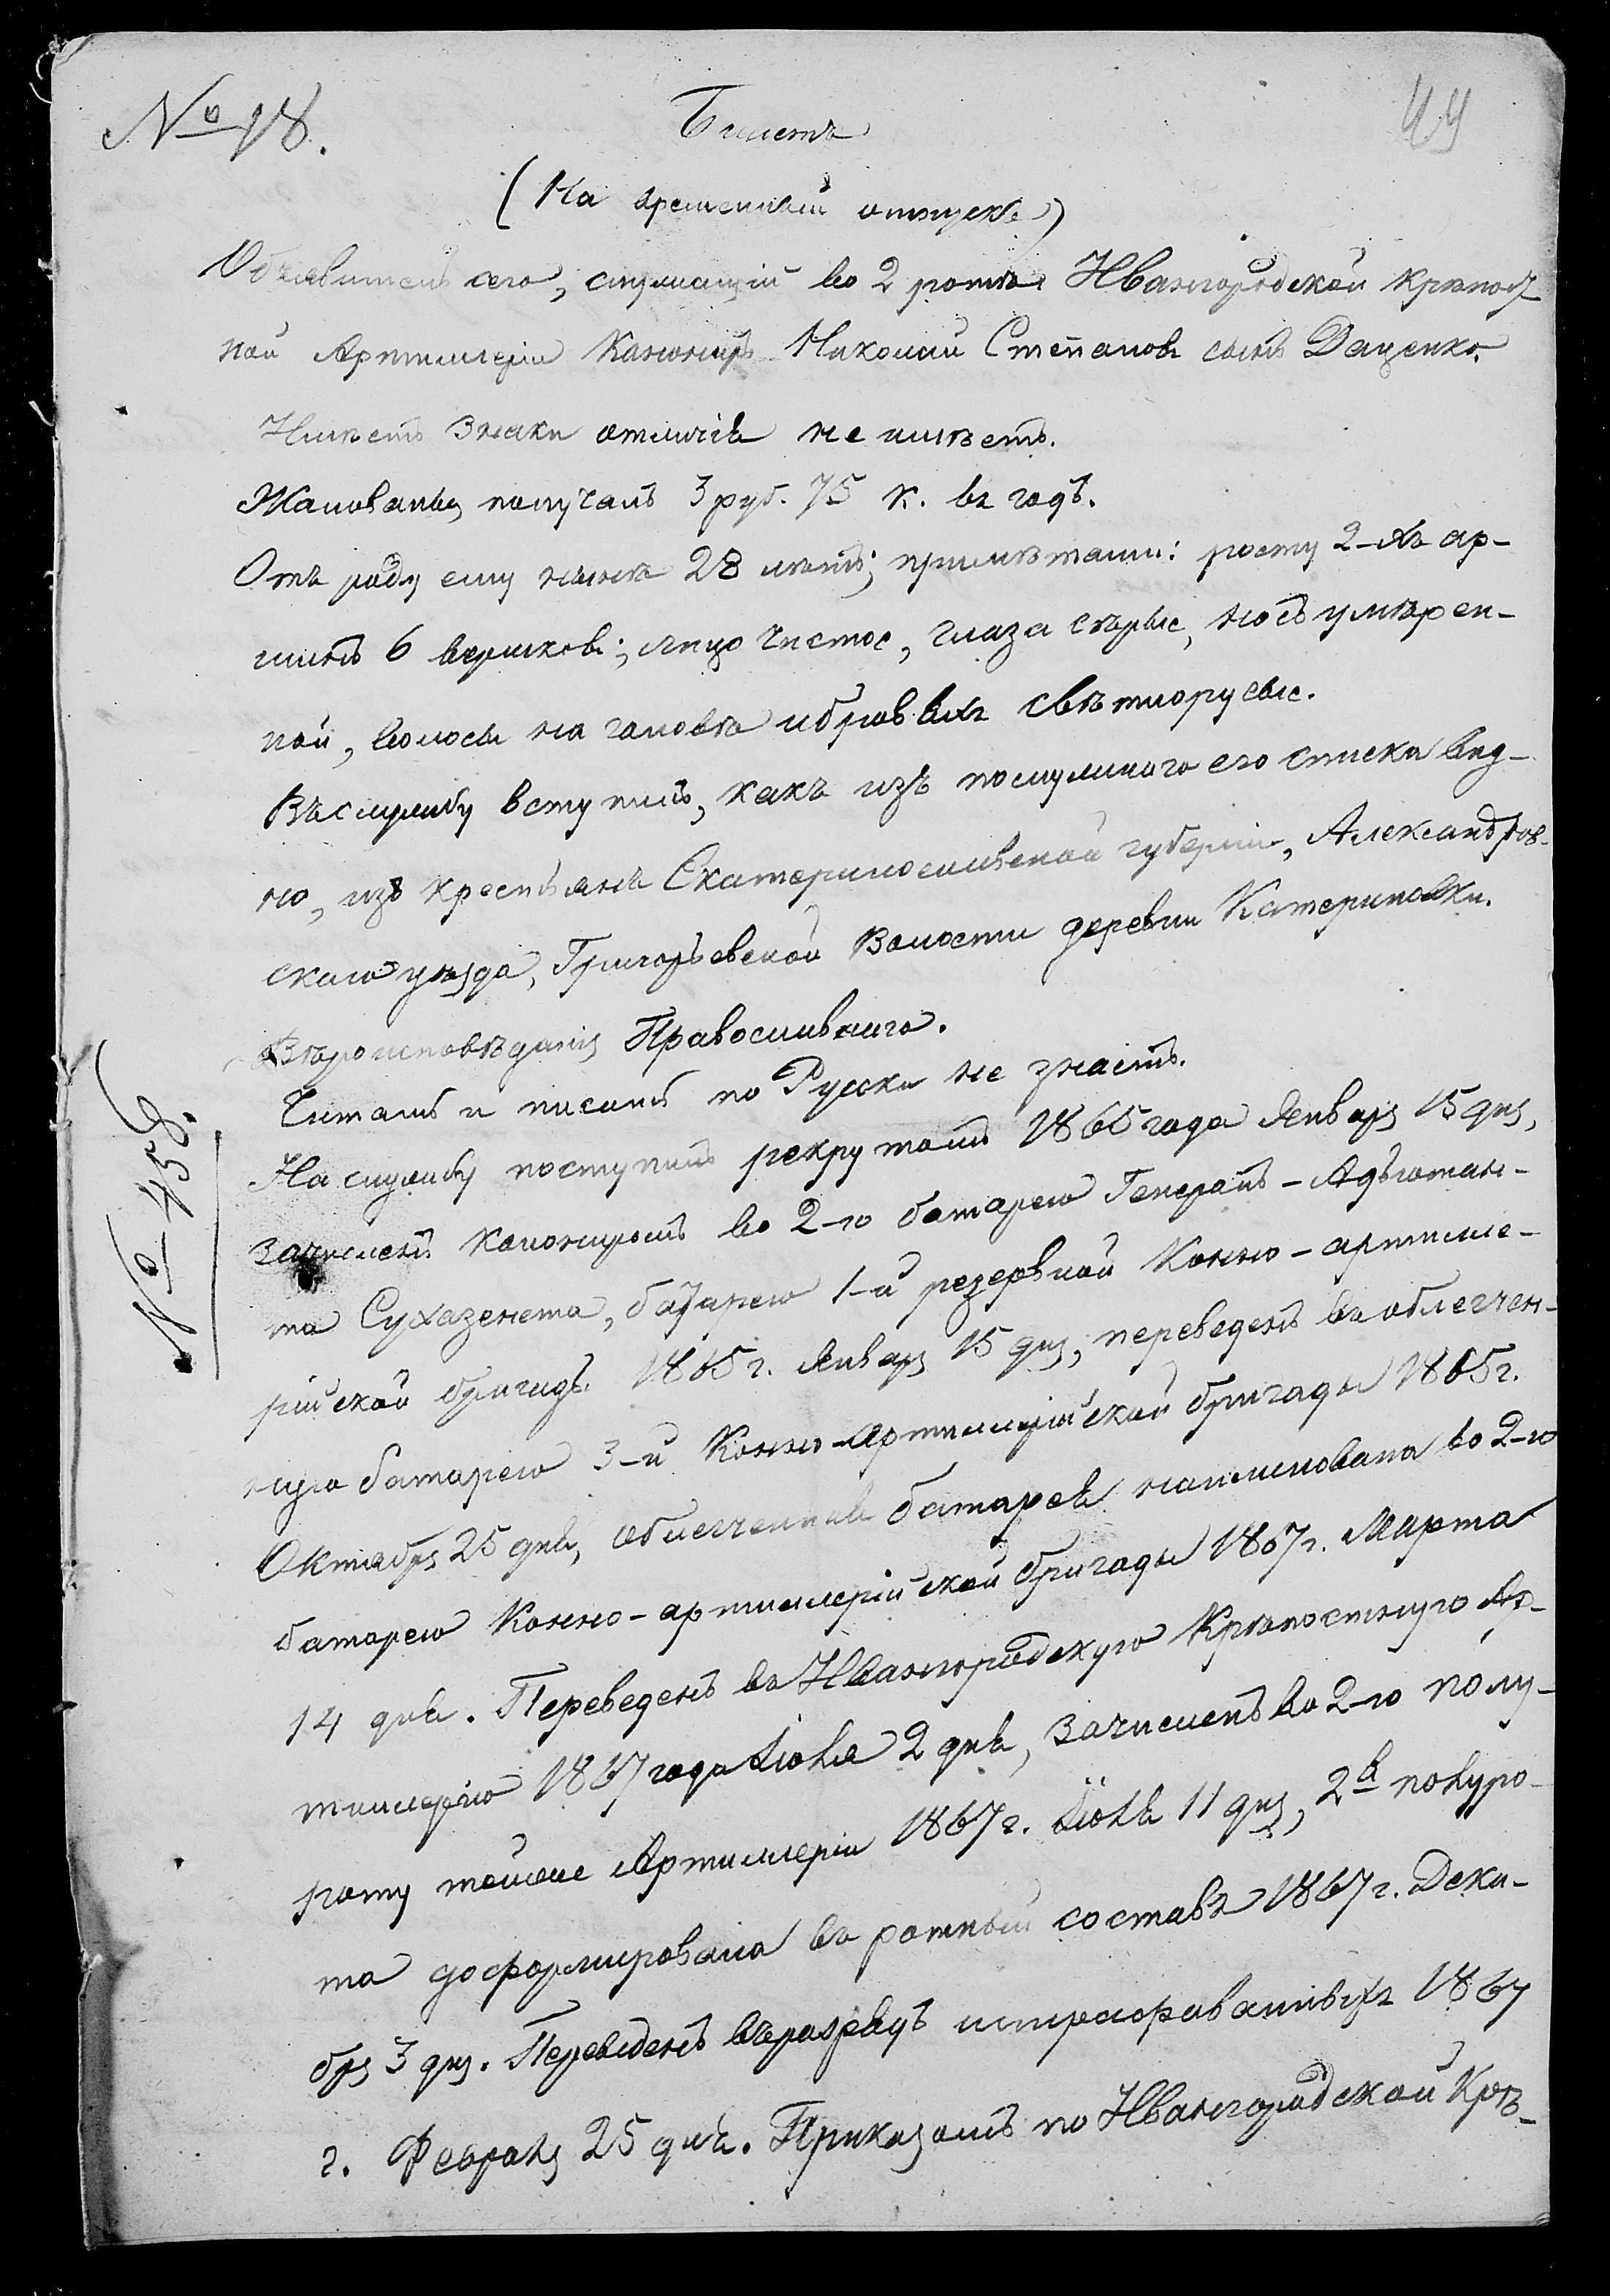 № 18.
Билетъ
44
(На временный отпускъ)
Объявитель сего, служащій во 2 ротѣ Ивангородской Крѣпост-
ной Артиллеріи Канониръ Николай Степановъ сынъ Даценко.
Имѣетъ Знаки отличія не имѣетъ.
Жалованья получалъ 3 руб. 75 к. въ годъ.
Отъ роду ему нынѣ 28 лѣтъ; примѣтами: росту 2-хъ ар-
шинъ 6 вершковъ; лицо чистое, глаза сѣрые, носъ умѣрен-
ной, волосы на головѣ и бровяхъ свѣтлорусые.
Въ службу вступилъ, какъ изъ послужного его списка вид-
но, изъ крестьянъ Екатеринославской губерніи, Александров-
скаго уѣзда, Григорьевской Волости деревни Катериновки.
Вѣроисповѣданія Православнаго.
Читать и писать по Руски не знаетъ.
На службу поступилъ рекрутомъ 1865 года Января 15 дня,
Зачисленъ Канониромъ во 2-ю батарею Генералъ-Адъютан-
та Сухазенета, батарею 1-й резервной Конно-артилле-
рійской бригады 1865 г. Января 15 дня, переведенъ въ облегчен-
ную батарею 3-й Конно-Артиллерійской бригады 1865 г.
Октября 25 дня, облегченная батарея наименована во 2-ю
батарею Конно-артиллерійской бригады 1867 г. Марта
14 дня. Переведенъ въ Ивангородскую Крѣпостную Ар-
тиллерію 1867 года 2 дня, Зачисленъ во 2-ю полу-
роту тойже Артиллеріи 1867 г. 11 дня, 2я полуро-
та досформирована въ ротный составъ 1867 г. Дека-
бря 3 дня. Переведенъ въ разрядъ 1867
г. Февраля 25 дня. Приказомъ по Ивангородской Крѣ-
№ 458.